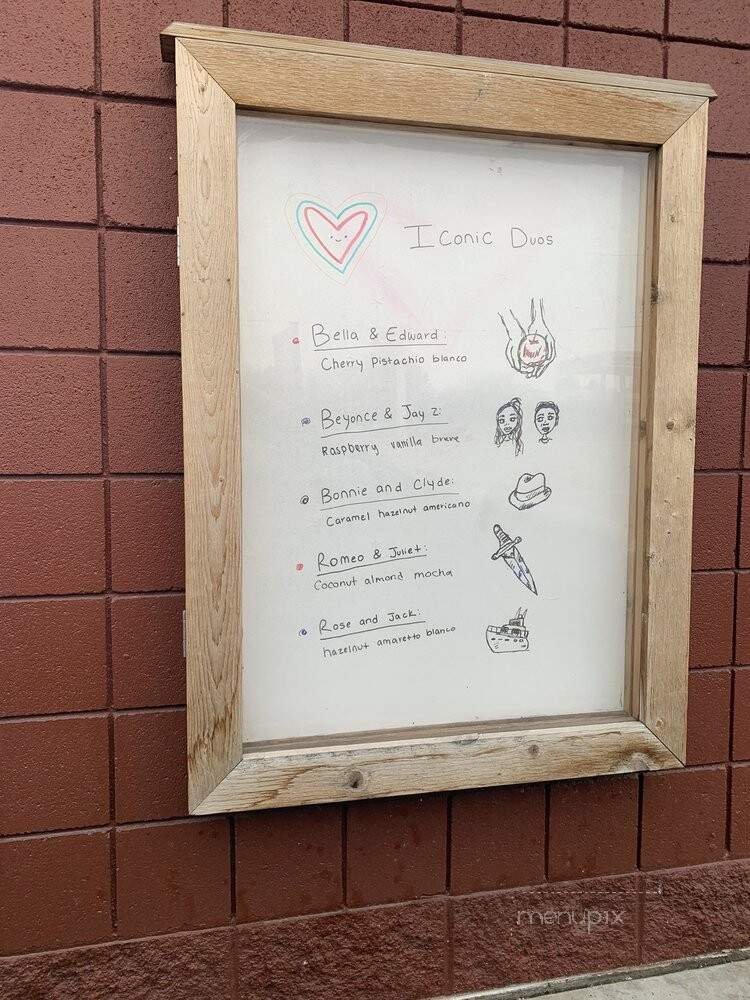 Iconic Duos
Bella & Edward:
Cherry Pistachio blanco
Beyonce & Jay Z:
Raspberry vanilla breve
Bonnie and Clyde:
Caramel hazelnut americano
Romeo & Juliet:
Coconut almond mocha
Rose and Jack:
hazelnut amaretto blanco
menupix